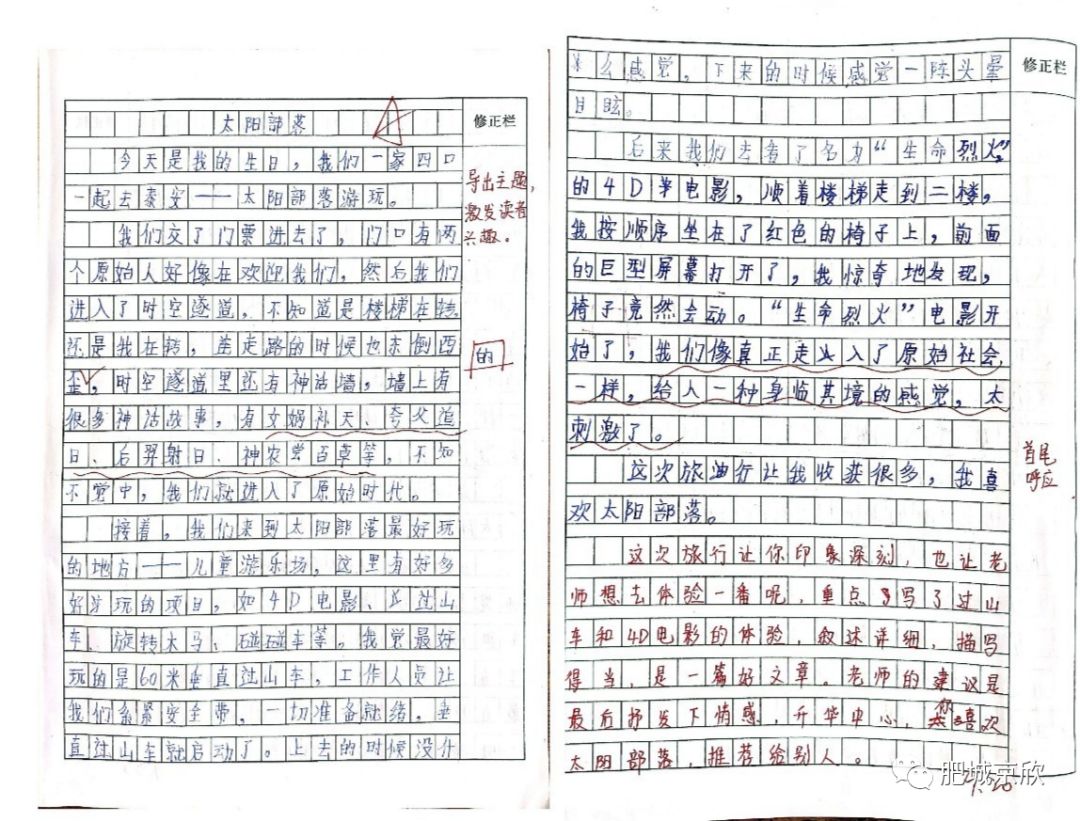 太阳部落
修正栏
今天是我的生日，我们一家四口
一起去泰安——太阳部落游玩。
导出主题，
激发读者
兴趣。
我们交了门票进去了，门口有两
个原始人好像在欢迎我们，然后我们
进入了时空遂道，不知道是楼梯在转
还是我在转，连走路的时候也东倒西
的
歪，时空遂道里还有神话墙，墙上有
很多神话故事，有女娲补天、夸父追
日、后羿射日、神农尝百草等，不知
不觉中，我们就进入了原始时代。
接着，我们来到太阳部落最好玩
的地方——儿童游乐场，这里有好多
好玩的项目，如4D电影、过山
车、旋转木马、碰碰车等，我觉最好
玩的是60米垂直过山车，工作人员让
我们系紧安全带，一切准备就绪，垂
直过山车就启动了。上去的时候没什
么感觉，下来的时候感觉一阵头晕
修正栏
目眩。
后来我们去看了名为“生命烈火”
的4D电影，顺着楼梯走到二楼，
我按顺序坐在了红色的椅子上，前面
的巨型屏幕打开了，我惊奇地发现，
椅子竟然会动。“生命烈火”电影开
始了，我们像真正走入了原始社会
一样，给人一种身临其境的感觉，太
刺激了。
这次旅行让我收获很多，我喜
欢太阳部落。
首尾
呼应
这次旅行让你印象深刻，也让老
师想去体验一番呢，重点写了过山
车和4D电影的体验，叙述详细，描写
得当，是一篇好文章。老师的建议是
最后抒发下情感，升华中心，你喜欢
太阳部落，推荐给别人。
肥城京欣